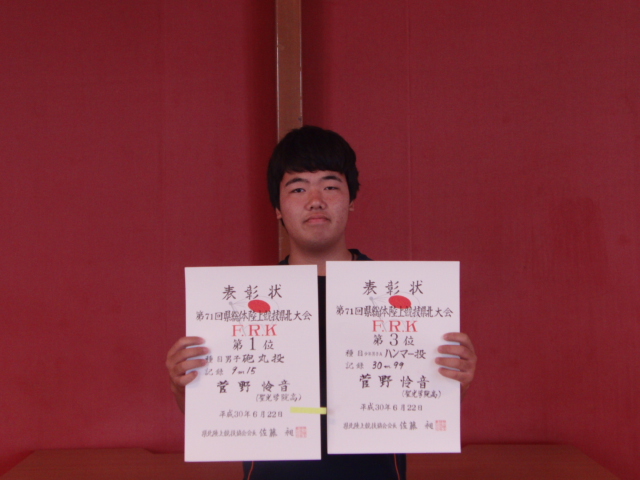 表彰状
第71回県総体陸上競技県北大会
F.R.K
第1位
種目 男子 砲丸投
記録 9m15
菅野怜音
(聖光学院高)
平成30年6月22日
県北陸上競技協会会長 佐藤
表彰状
第71回県総体陸上競技県北大会
F.R.K
第3位
種目 ハンマー投
記録 30m99
菅野怜音
(聖光学院高)
平成30年6月22日
県北陸上競技協会会長 佐藤